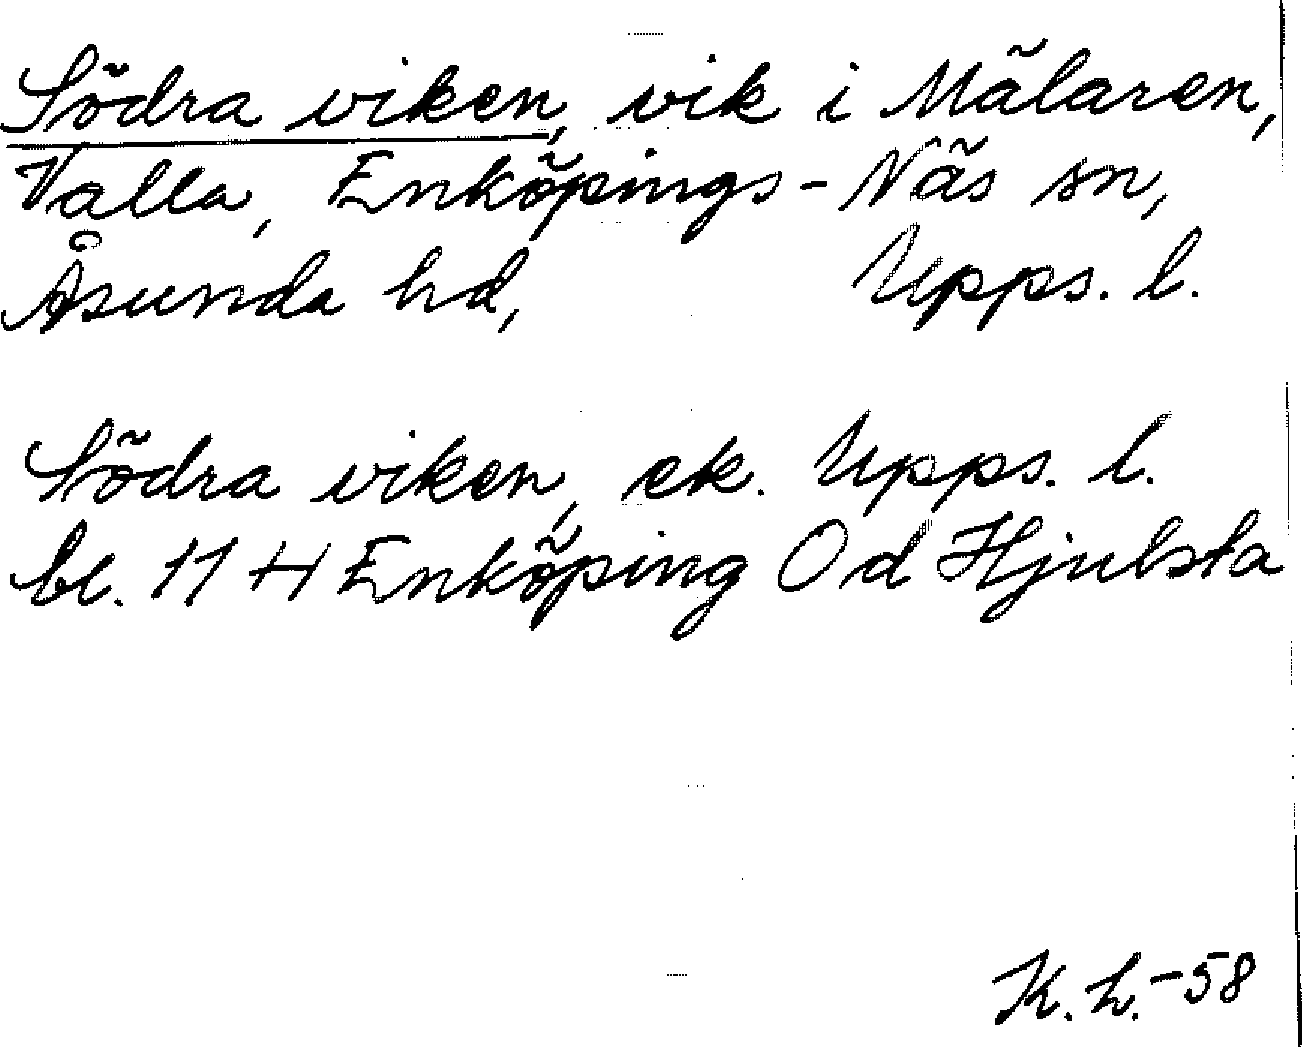 Södra viken, vik i Mälaren,
Valla, Enköpings-Näs sn,
Åsunda hd, Upps. l.
Södra viken, ek. Upps. l.
bl. 11 H Enköping O d Hjulsta
K. L. -58